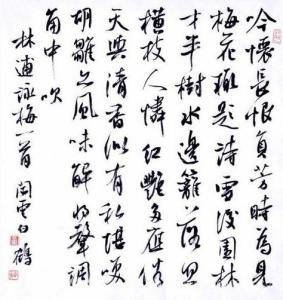 吟懷長恨負芳時為見
梅花輒題詩雪後園林
才半樹水邊籬落忽
橫枝人憐紅艷多應俗
天與清香似有私堪笑
胡雛亦風味解將聲調
角中吹
林逋詠梅一首 閩雲白鶴